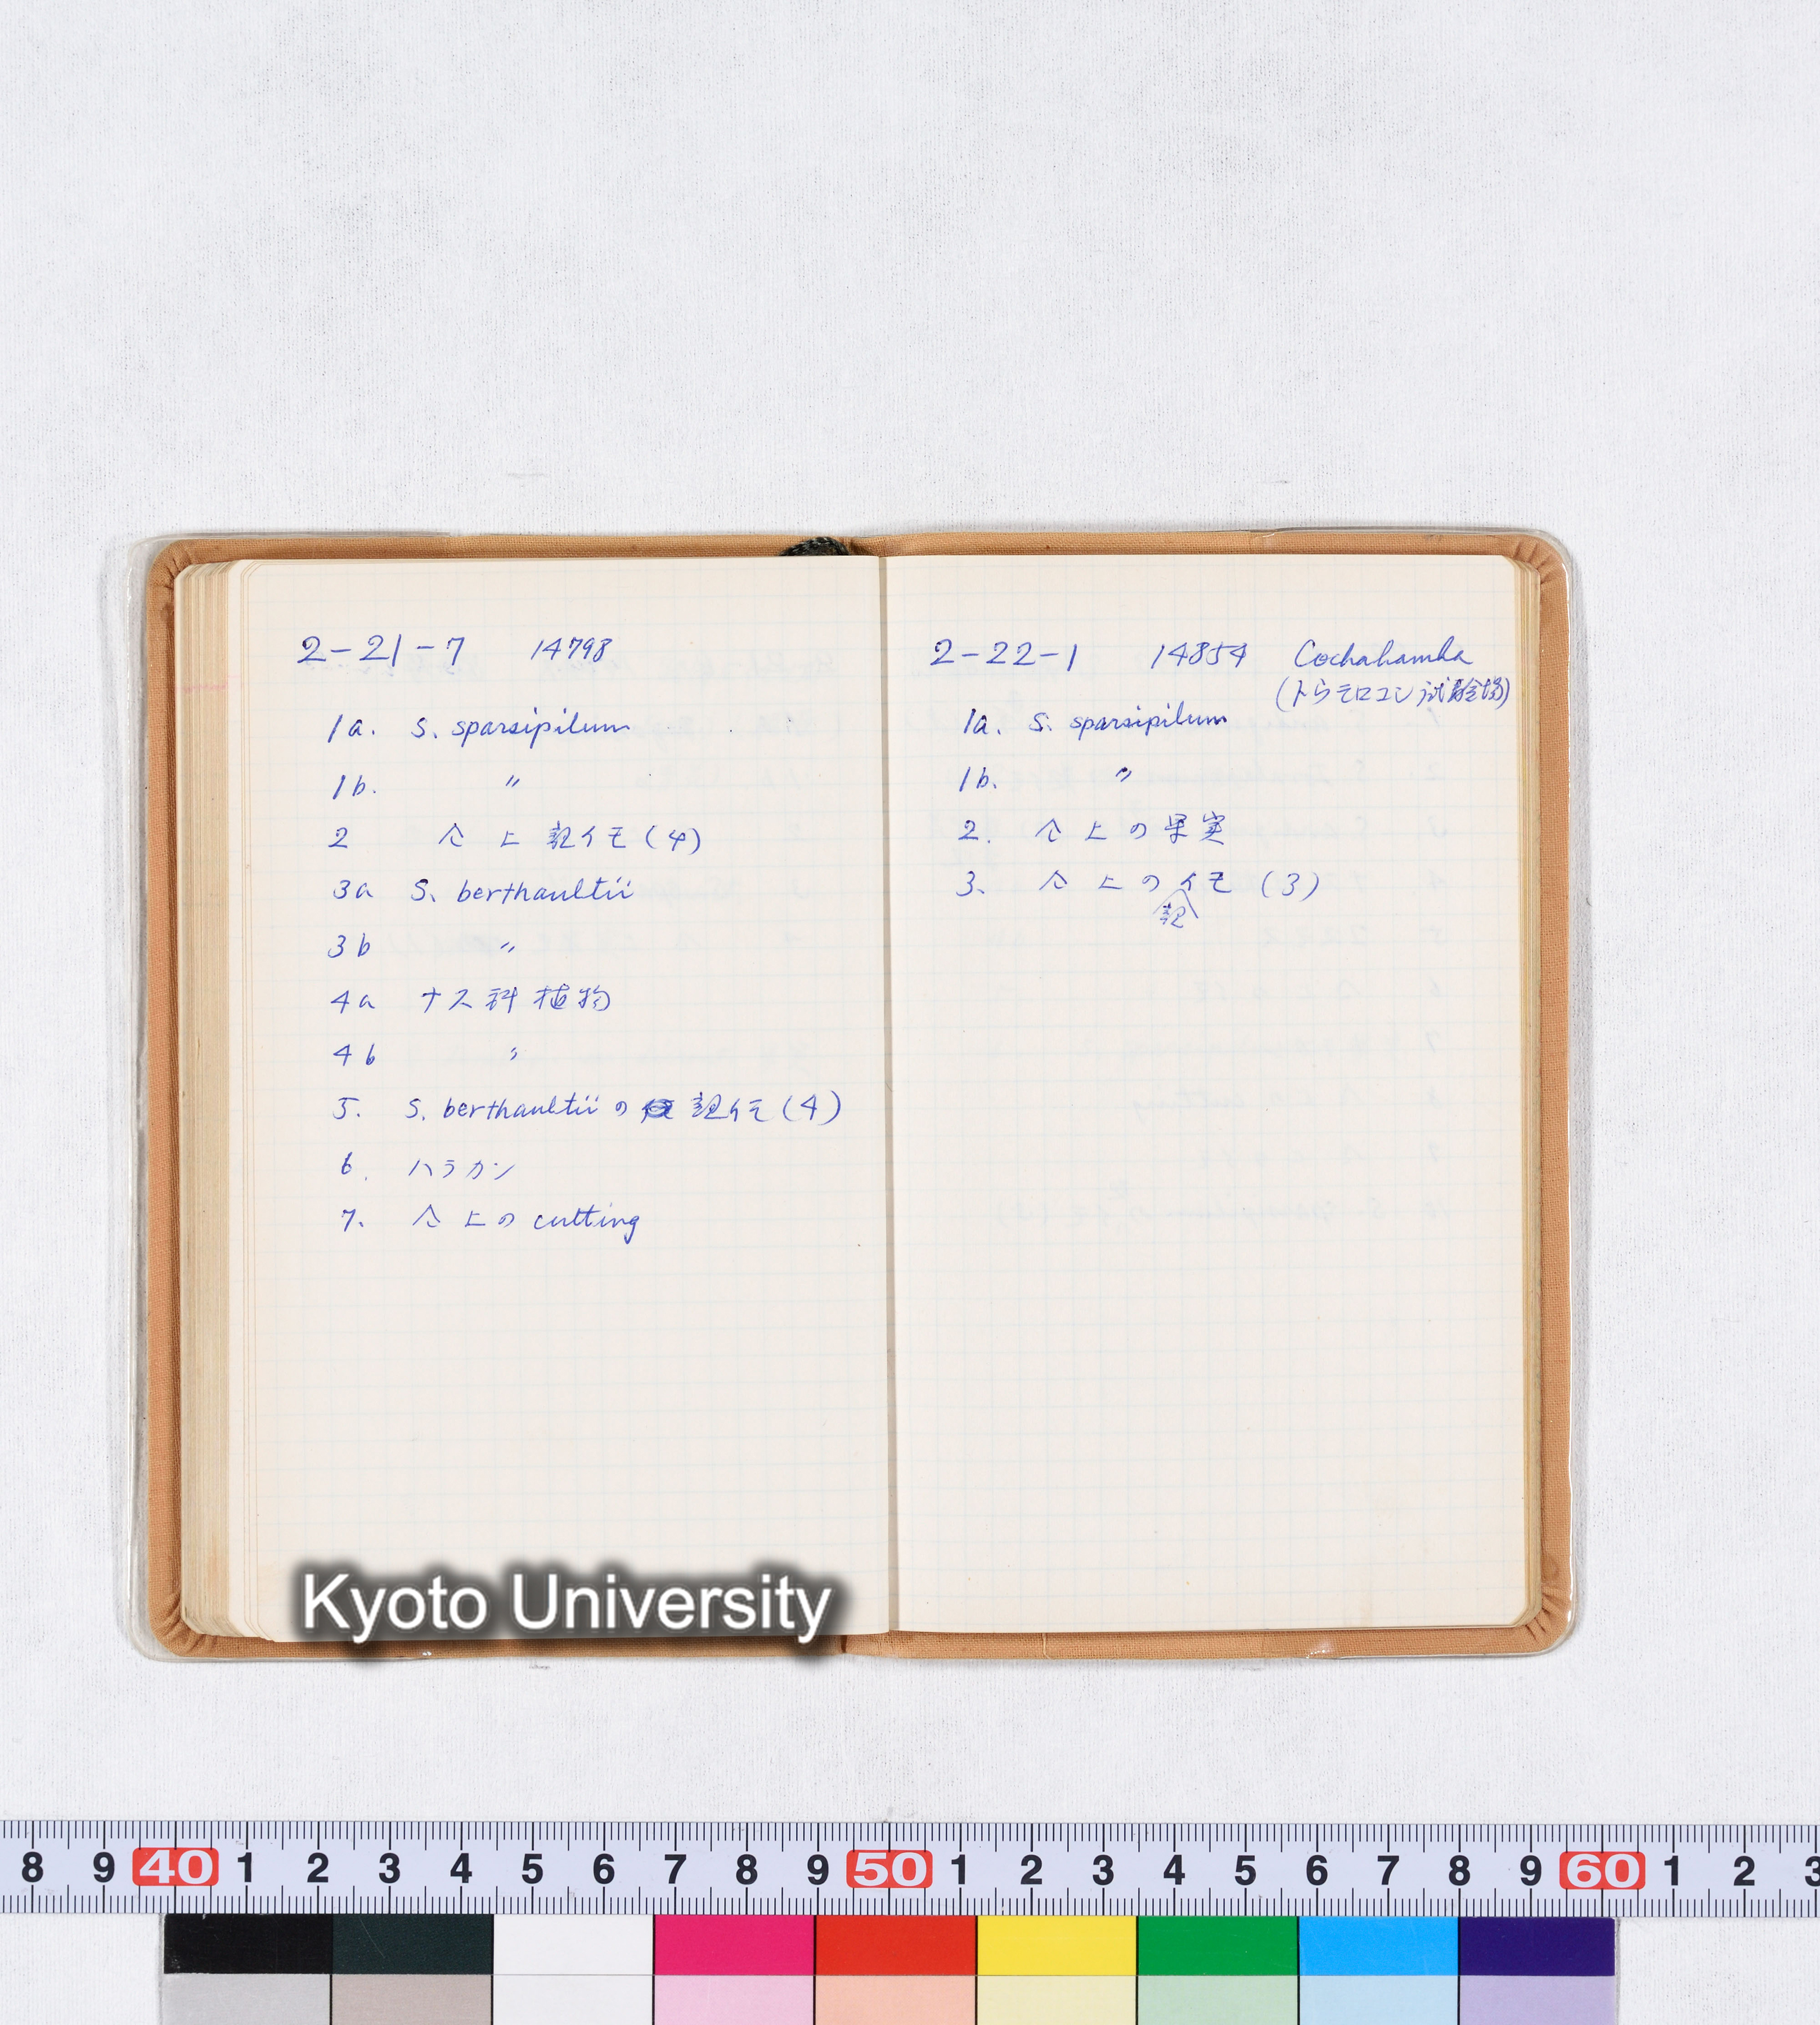 2-21-7 14798
1a. S. sparsipilum
1b. 〃
2 仝上 記イモ (4)
3a S. berthaultii
3b 〃
4a ナス科植物
4b 〃
5. S. berthaultii の 記イモ (4)
6. ハラカン
7. 仝上の cutting
2-22-1 14854 Cochabamba
(トラモロコン試験場)
1a. S. sparsipilum
1b. 〃
2. 仝上の果実
3. 仝上の記イモ (3)
Kyoto University
8 9 40 1 2 3 4 5 6 7 8 9 50 1 2 3 4 5 6 7 8 9 60 1 2 3